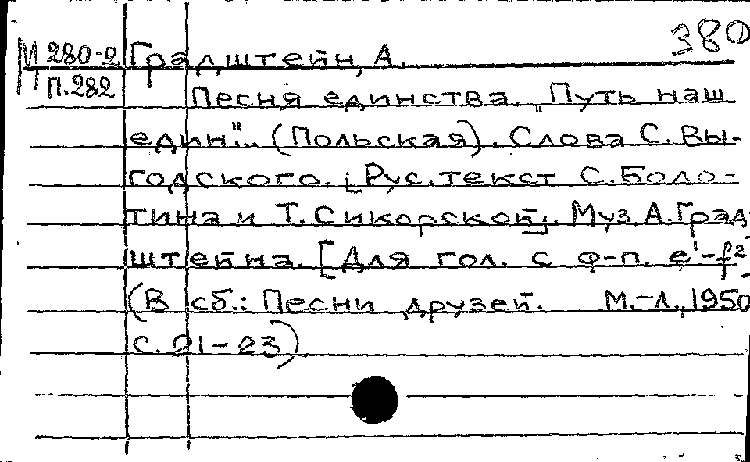 380
М 280-2 Градштейн, А.
П.282
Песня единства. „Путь наш
един"... (Польская). Слова С. Вы-
годского. [Рус. текст С. Боло-
тина и Т. Сикорской]. Муз. А. Град
штейна. [Для гол. с ф-п. e¹-f²
(В сб.: Песни друзей. М.-Л., 1950
с. 21-23)